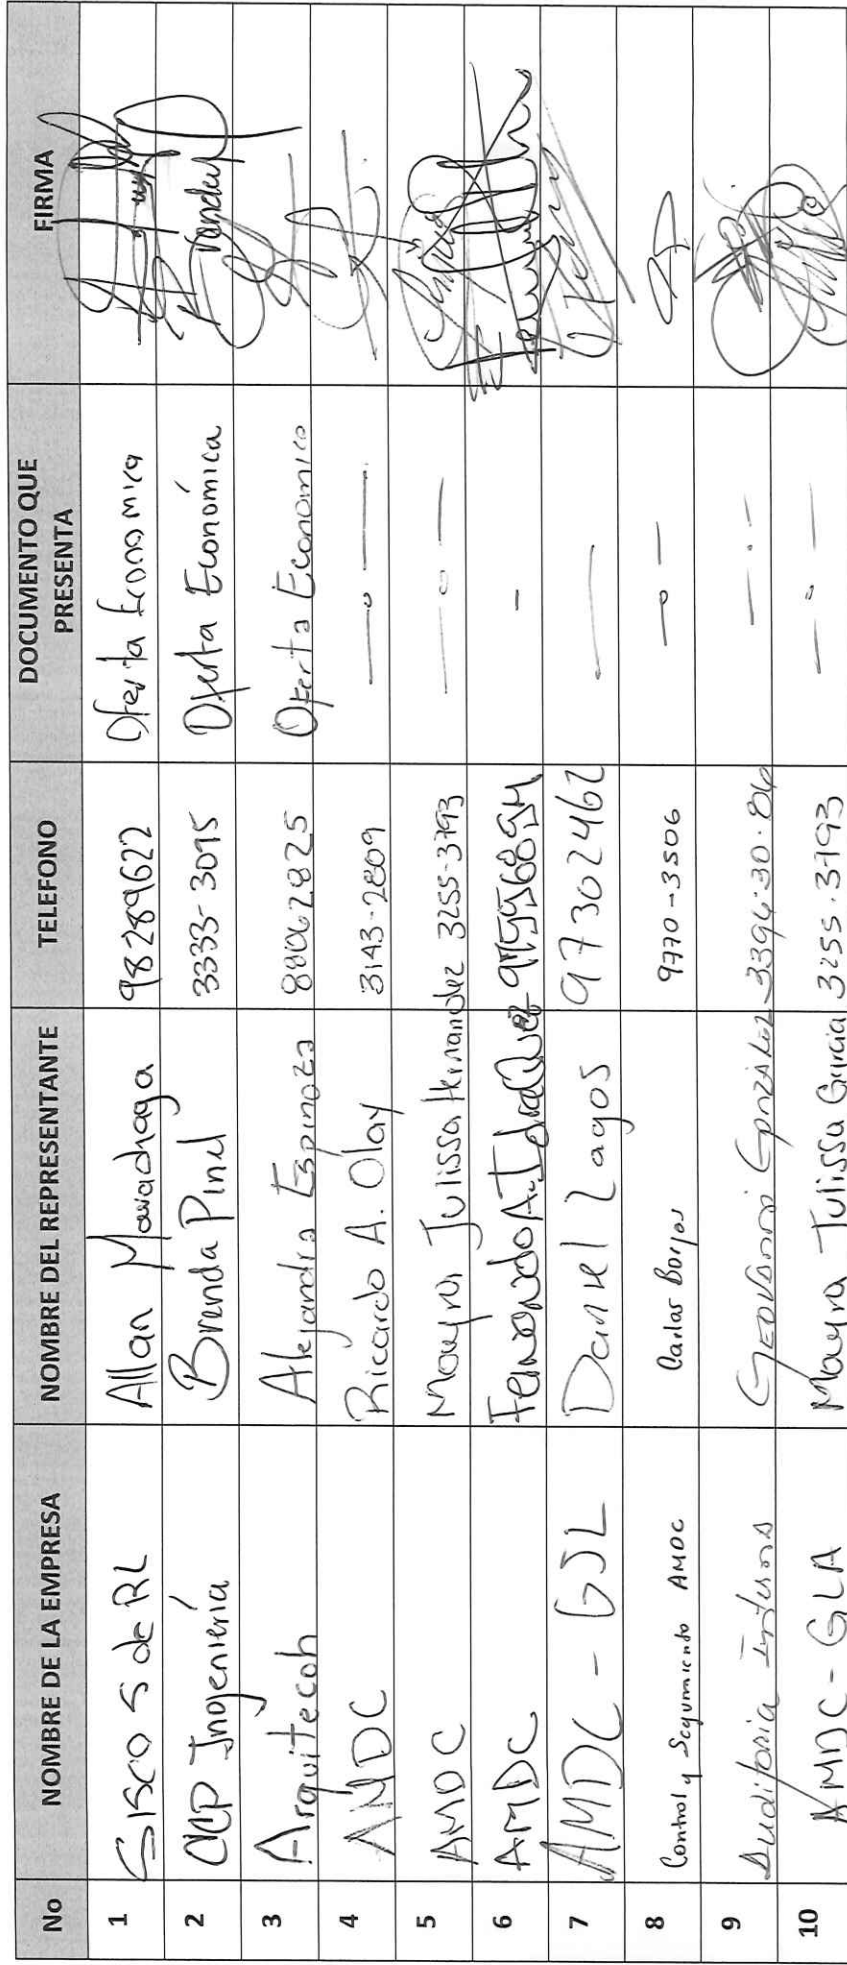 No NOMBRE DE LA EMPRESA NOMBRE DEL REPRESENTANTE TELEFONO DOCUMENTO QUE PRESENTA FIRMA
1 SISCO S de RL Allan 98289622 Oferta Economica
2 CCP Ingeniería Brenda Pinel 3333-3095 Oferta Económica
3 Arquitecoh Alejandra Espinoza Oferta Economica
4 AMDC Ricardo A. Olay 3143-2809
5 AMDC Mayra Julissa Hernandez 3255-3793
6 AMDC Fernando A.
7 AMDC - GJL Daniel Lagos 97302462
8 Control y Seguimiento AMDC Carlos Borjas 9770-3506
9 Auditoria Interna Geovanni González
10 AMDC - GLA Mayra Julissa Garcia